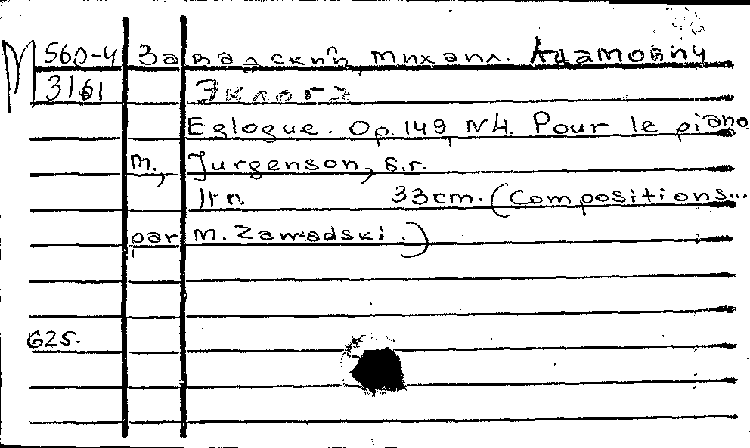 М 560-4 Завадский, Михаил. Адамович
3161 Эклога
Eglogue. Op. 149, N4. Pour le piano
М., Jurgenson, б.г.
33cm. (Compositions...
par M. Zawadski.)
625.